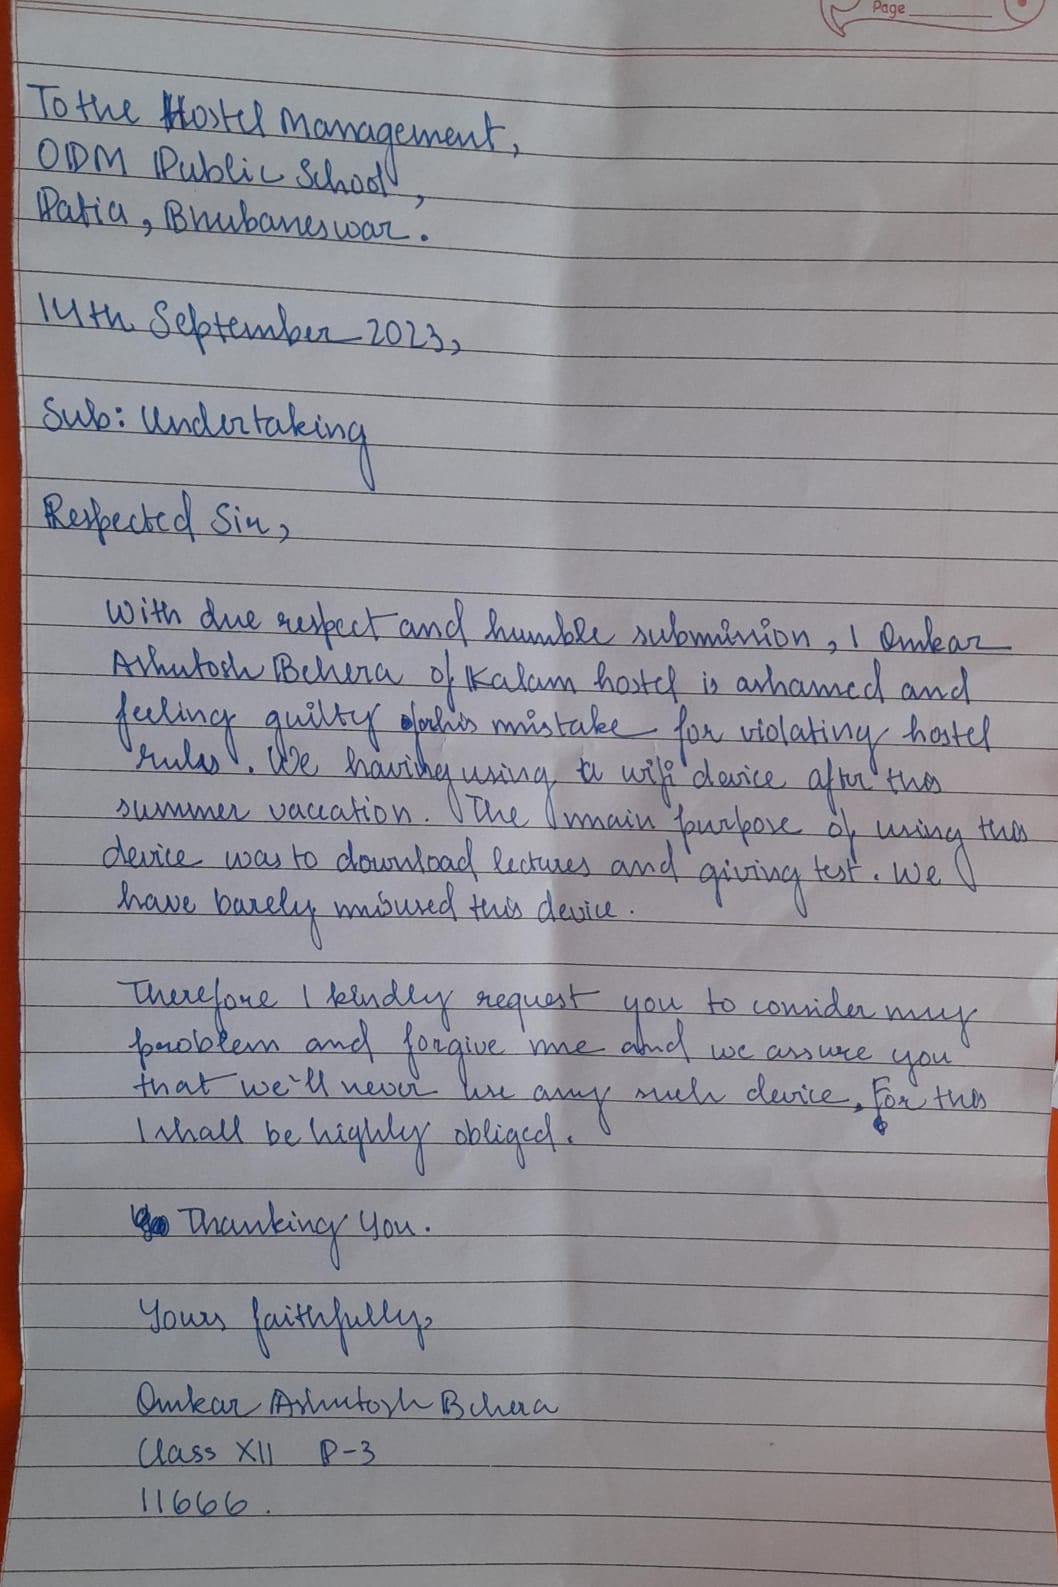 Page
To the Hostel Management,
ODM Public School,
Patia, Bhubaneswar.
14th September 2023,
Sub: Undertaking
Respected Sir,
With due respect and humble submission, I Omkar
Ashutosh Behera of Kalam hostel is ashamed and
feeling guilty of this mistake for violating hostel
rules. We having using a wifi device after this
summer vacation. The main purpose of using this
device was to download lectures and giving test. We
have barely misused this device.
Therefore I kindly request you to consider my
problem and forgive me and we assure you
that we'll never use any such device, For this
I shall be highly obliged.
Thanking You.
Yours faithfully,
Omkar Ashutosh Behera
Class XII P-3
11666.